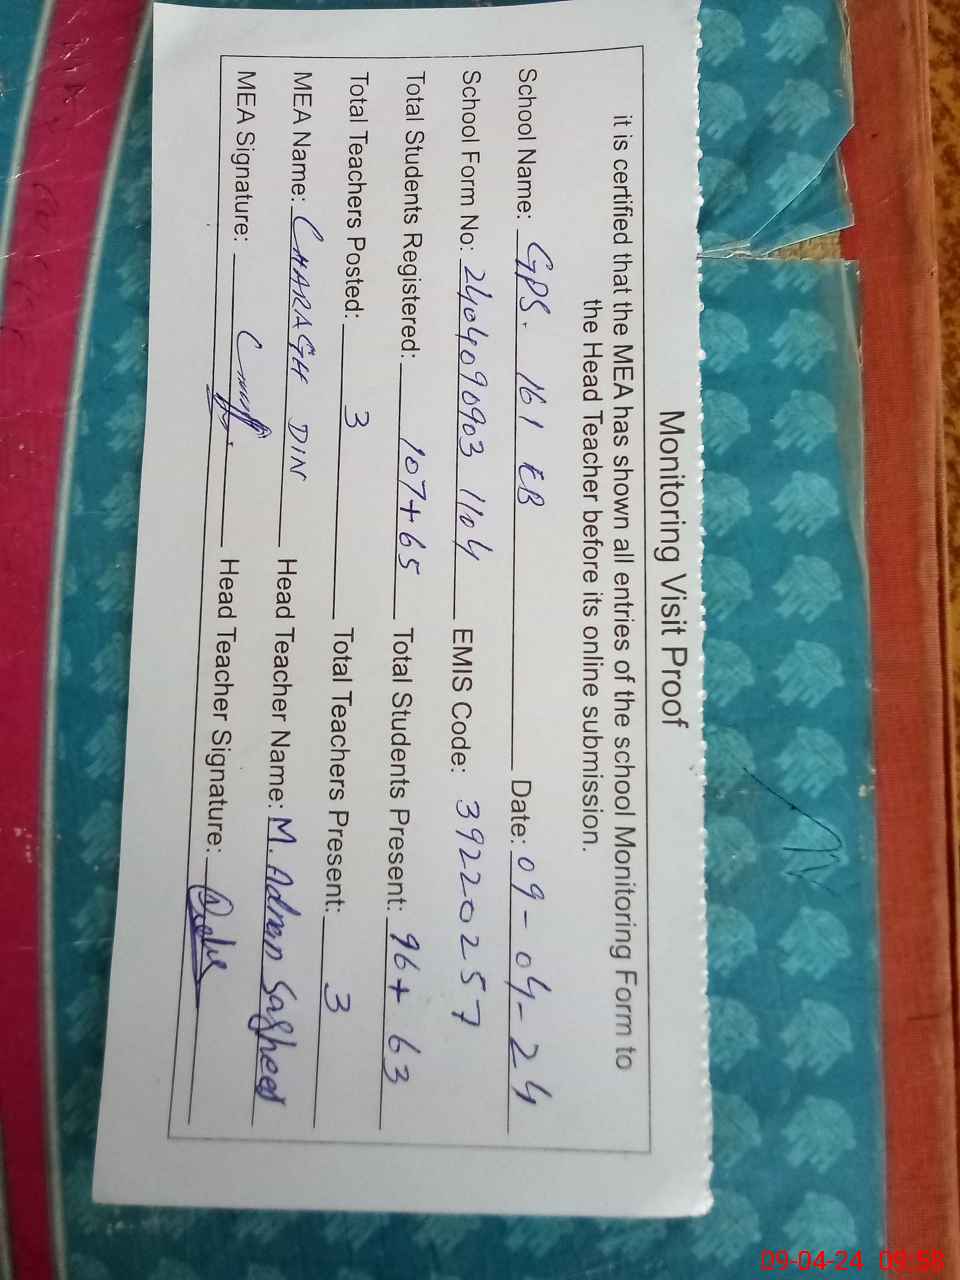 Monitoring Visit Proof
it is certified that the MEA has shown all entries of the school Monitoring Form to
the Head Teacher before its online submission.
School Name: GPS. 161 EB Date: 09-04-24
School Form No: 2404090903 1104 EMIS Code: 39220257
Total Students Registered: 107+65 Total Students Present: 96+ 63
Total Teachers Posted: 3 Total Teachers Present: 3
MEA Name: CHARAGH DIN Head Teacher Name: M. Adnan
MEA Signature: Head Teacher Signature:
09-04-24 09:58